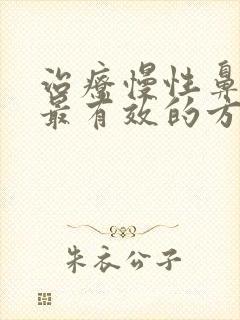 治疗慢性鼻
最有效的方
朱衣公子